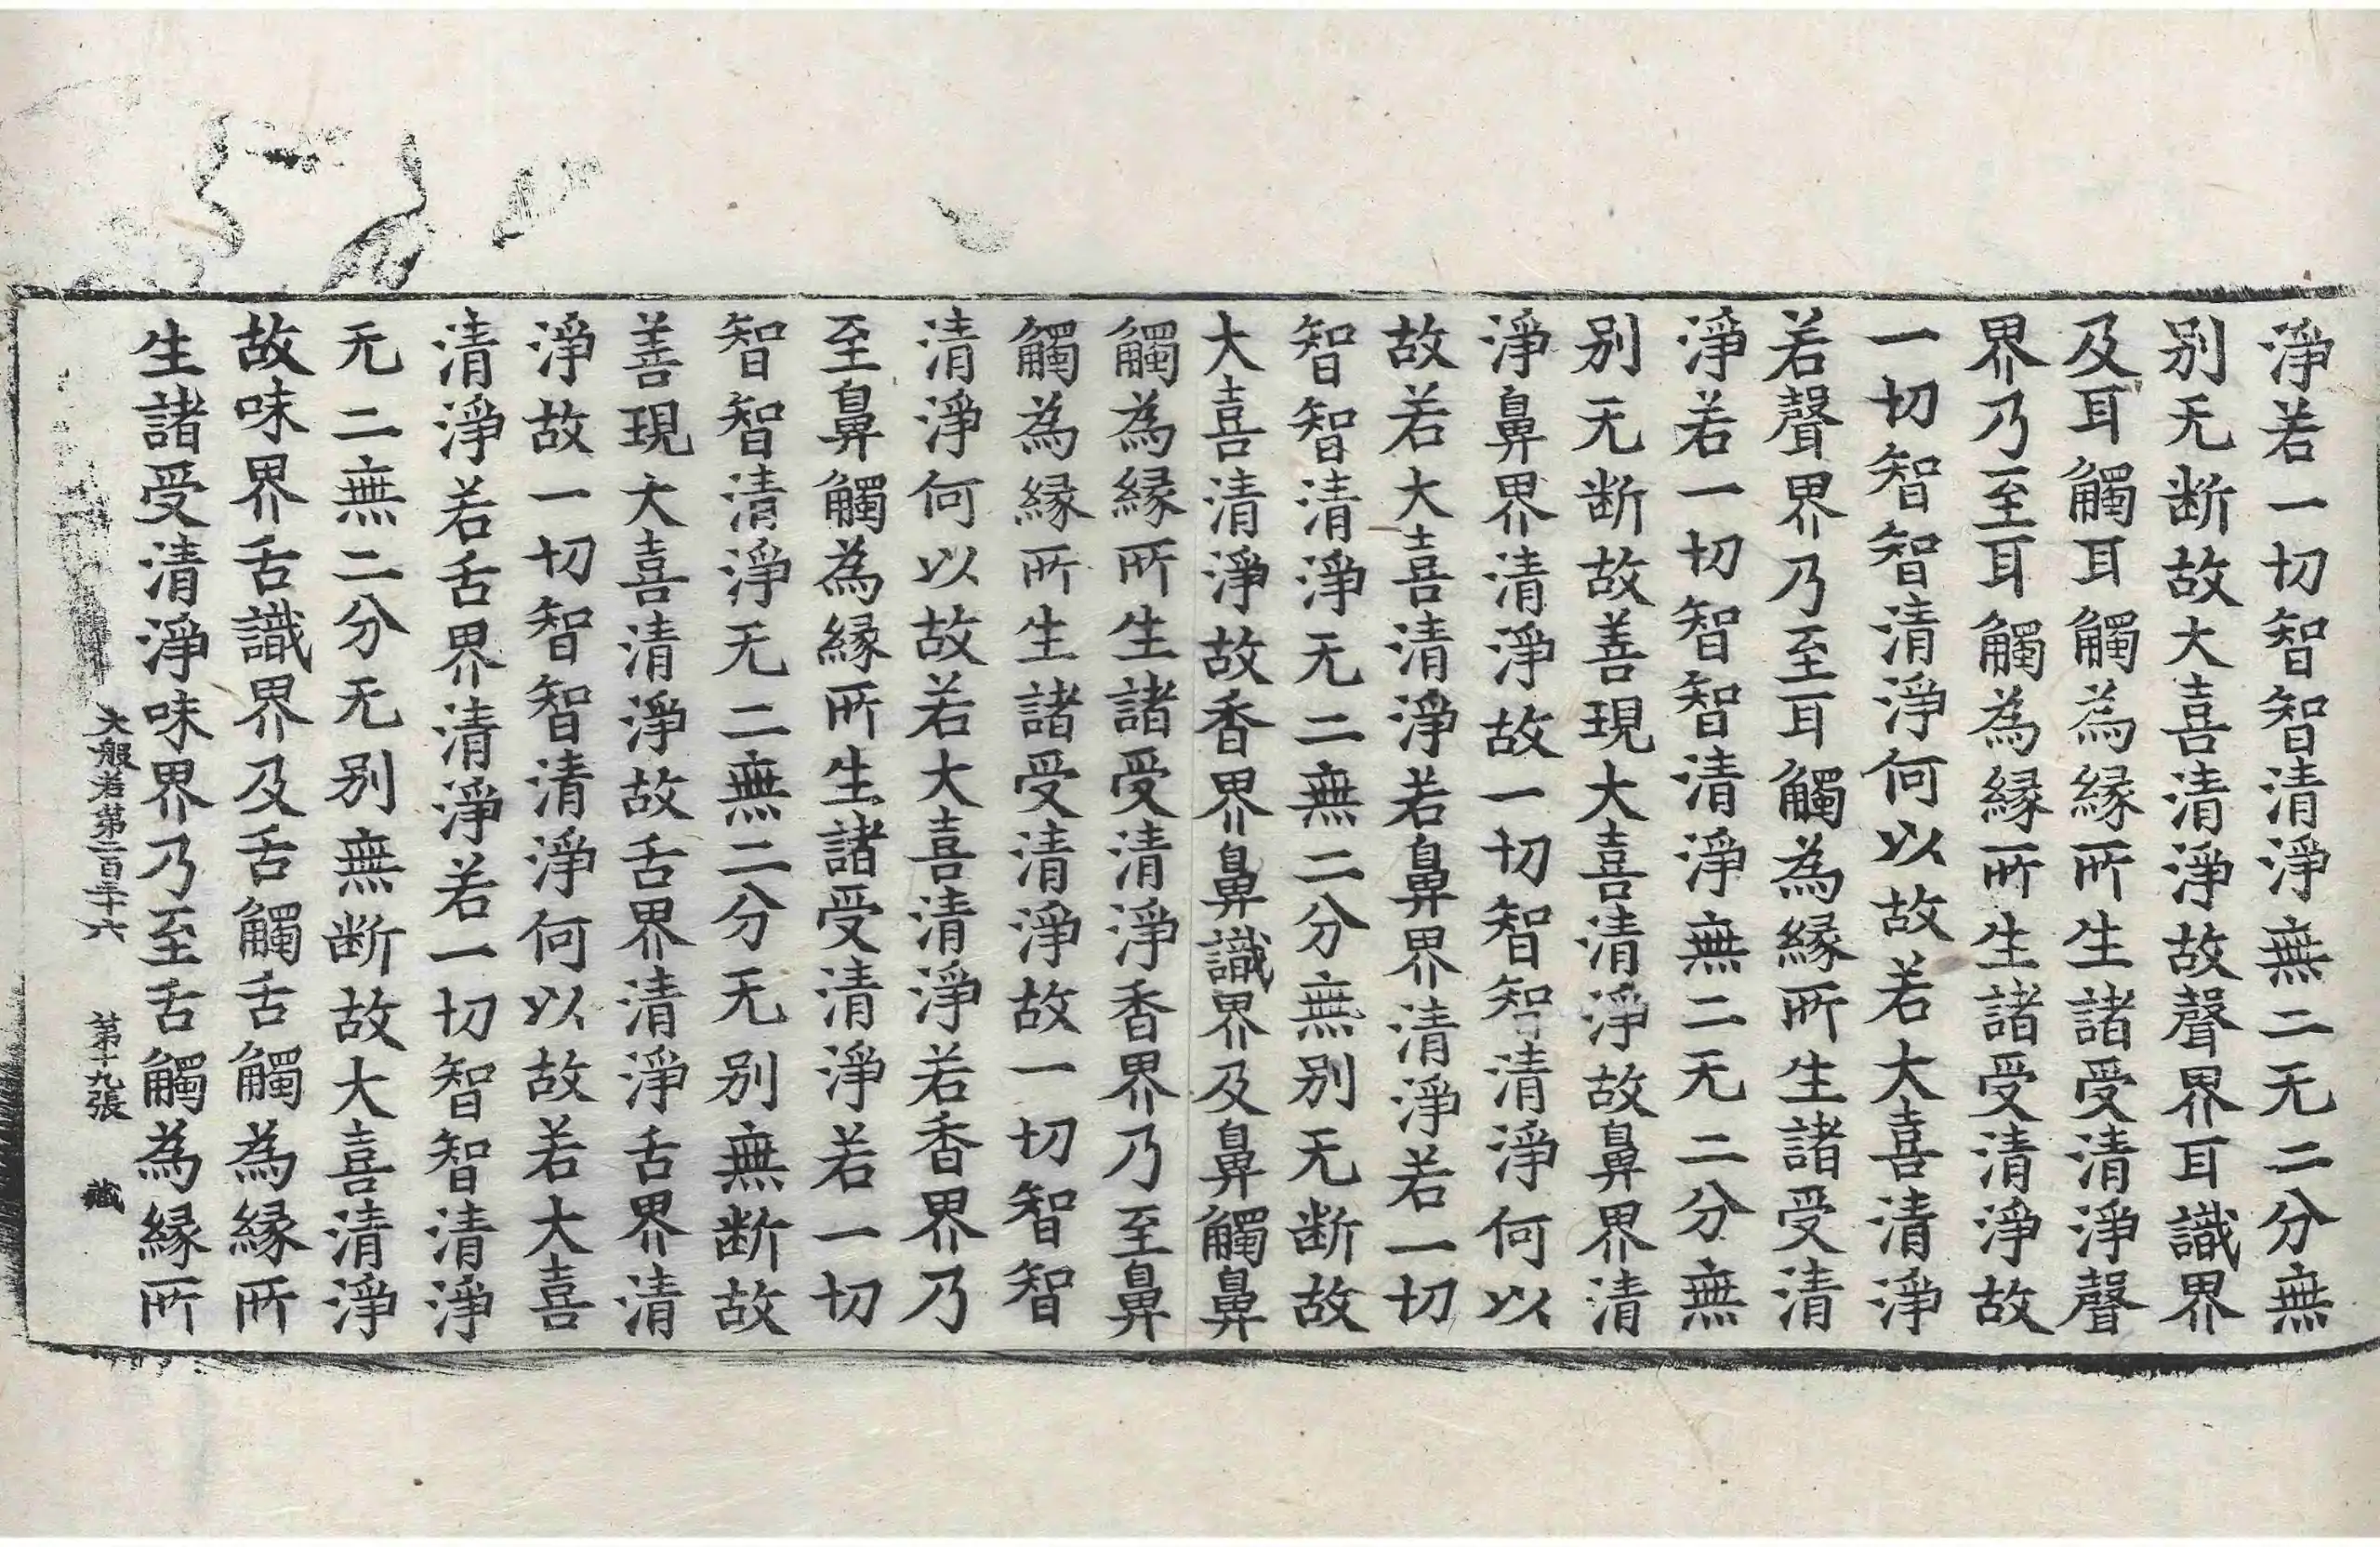 淨若一切智智清淨無二无二分無
别无断故大喜清淨故聲界耳識界
及耳觸耳觸為縁所生諸受清淨聲
界乃至耳觸為縁所生諸受清淨故
一切智智清淨何以故若大喜清淨
若聲界乃至耳觸為縁所生諸受清
淨若一切智智清淨無二无二分無
别无断故善現大喜清淨故鼻界清
淨鼻界清淨故一切智智清淨何以
故若大喜清淨若鼻界清淨若一切
智智清淨无二無二分無别无断故
大喜清淨故香界鼻識界及鼻觸鼻
觸為縁所生諸受清淨香界乃至鼻
觸為縁所生諸受清淨故一切智智
清淨何以故若大喜清淨若香界乃
至鼻觸為縁所生諸受清淨若一切
智智清淨无二無二分无别無断故
善現大喜清淨故舌界清淨舌界清
淨故一切智智清淨何以故若大喜
清淨若舌界清淨若一切智智清淨
无二無二分无别無断故大喜清淨
故味界舌識界及舌觸舌觸為縁所
生諸受清淨味界乃至舌觸為縁所
大般若第二百三十六 第十九張 藏